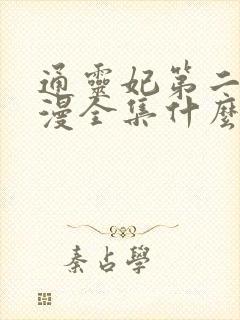 通靈妃第二
漫全集什麼
秦占學